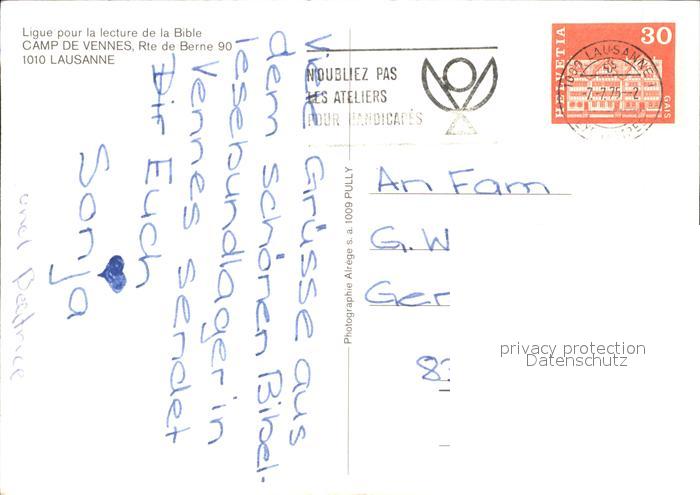 Ligue pour la lecture de la Bible
CAMP DE VENNES, Rte de Berne 90
1010 LAUSANNE
Viele Grüsse aus
dem schönen Bibel-
lesebundlager in
Vennes sendet
Dir Euch
Sonja
und Patrice
Photographie Alrège s. a. 1009 PULLY
N'OUBLIEZ PAS
LES ATELIERS
POUR HANDICAPÉS
HELVETIA
30
GAIS
LAUSANNE
An Fam
G. W
Ger
8
privacy protection
Datenschutz